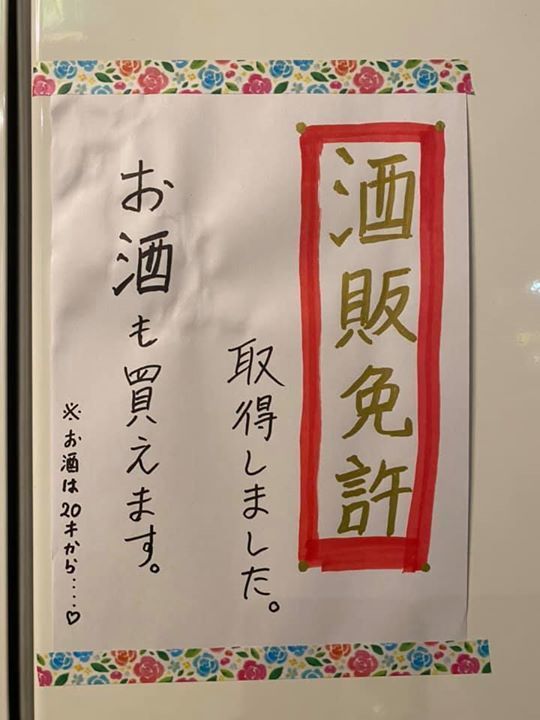 酒販免許
取得しました。
お酒も買えます。
※お酒は20才から‥‥♡